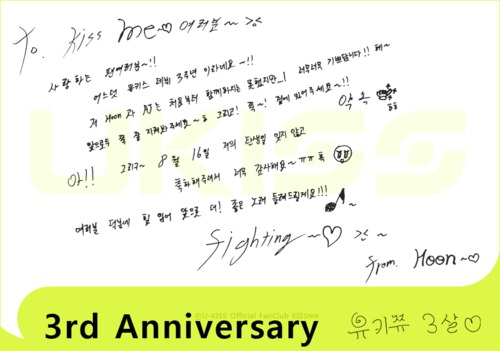 To. Kiss Me~♡ 여러분~ ><
사랑하는 팬여러분~!!
어느덧 유키스 데뷔 3주년 이라네요~!!
저 Hoon과 AJ는 처음부터 함께하지는 못했지만...! 너무너무 기쁘답니다!! 헤~
앞으로두 쭉 쭉 지켜봐주세요~ㅎ 그리고! 쭉~! 곁에 있어주세요~!! 약속
아!! 그리구~ 8월 16일 저의 탄생일 잊지 않고
축하해주셔서 너무 감사해요~ㅠㅠ 흑
여러분 덕분에 힘 입어 앞으로 더! 좋은 노래 들려드릴게요!!!
fighting~♡ ><~
from. Hoon~♡
UKISS
@U-KISS Official FanClub KISSme
3rd Anniversary
유키쮸 3살♡